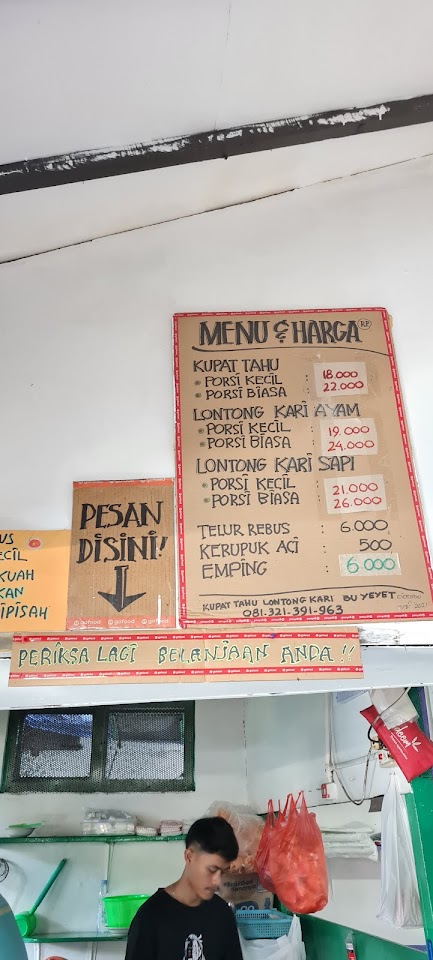 MENU & HARGA RP
KUPAT TAHU
PORSI KECIL : 18.000
PORSI BIASA : 22.000
LONTONG KARI AYAM
PORSI KECIL : 19.000
PORSI BIASA : 24.000
LONTONG KARI SAPI
PORSI KECIL : 21.000
PORSI BIASA : 26.000
TELUR REBUS : 6.000
KERUPUK ACI : 500
EMPING : 6.000
KUPAT TAHU LONTONG KARI BU YEYET
081.321.391.963
2021
PESAN
DISINI!
gofood
gofood
KUAH
KAN
IPISAH
PERIKSA LAGI BELANJAAN ANDA !!